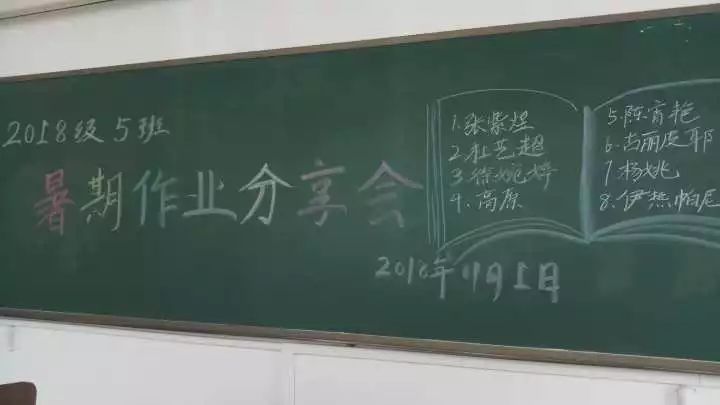 2018级5班
暑期作业分享会
1.张紫煜
2.杜芝超
3.徐婉婷
4.高原
5.陈宵艳
6.古丽皮耶
7.杨姚
8.伊热帕尼
2018年11月1日